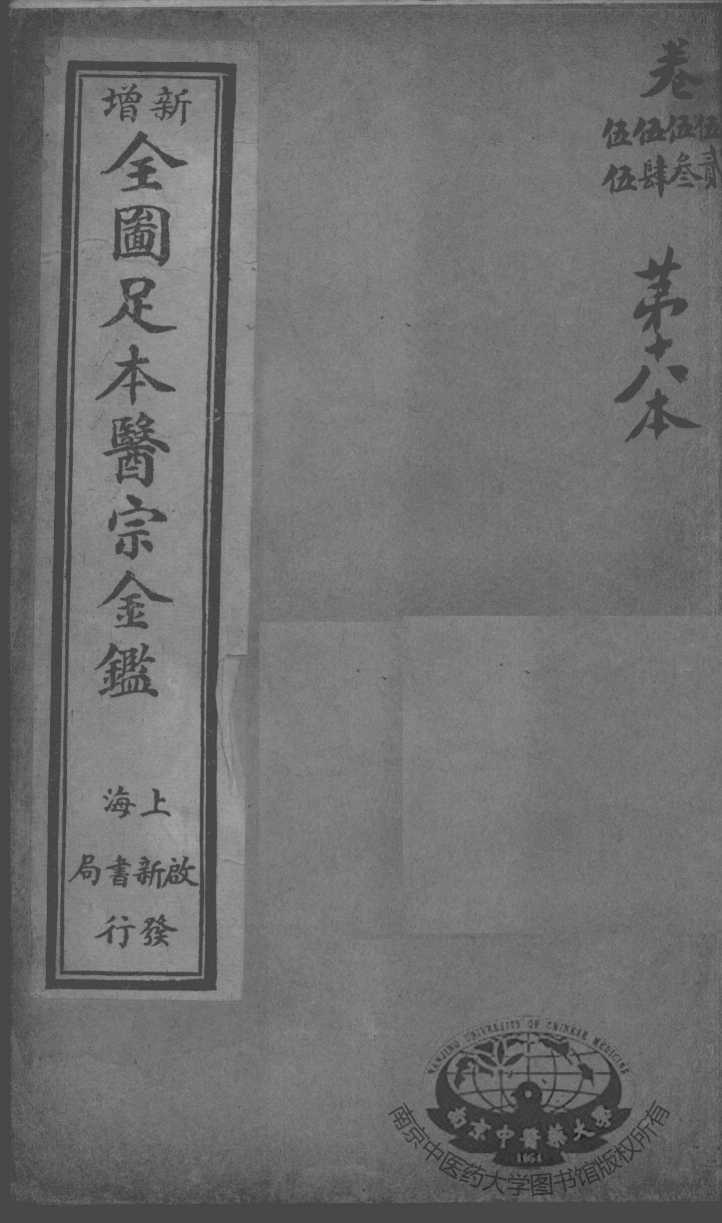 卷
伍貳
伍叄
伍肆
伍伍
第十八本
新增
全圖足本醫宗金鑑
上海
啟新書局
發行
NANJING UNIVERSITY OF CHINESE MEDICINE
南京中醫藥大學
1954
南京中医药大学图书馆版权所有